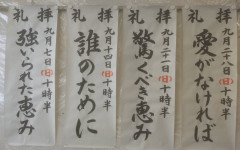 礼拝
九月七日(日)十時半
強いられた恵み
礼拝
九月十四日(日)十時半
誰のために
礼拝
九月二十一日(日)十時半
驚くべき恵み
礼拝
九月二十八日(日)十時半
愛がなければ